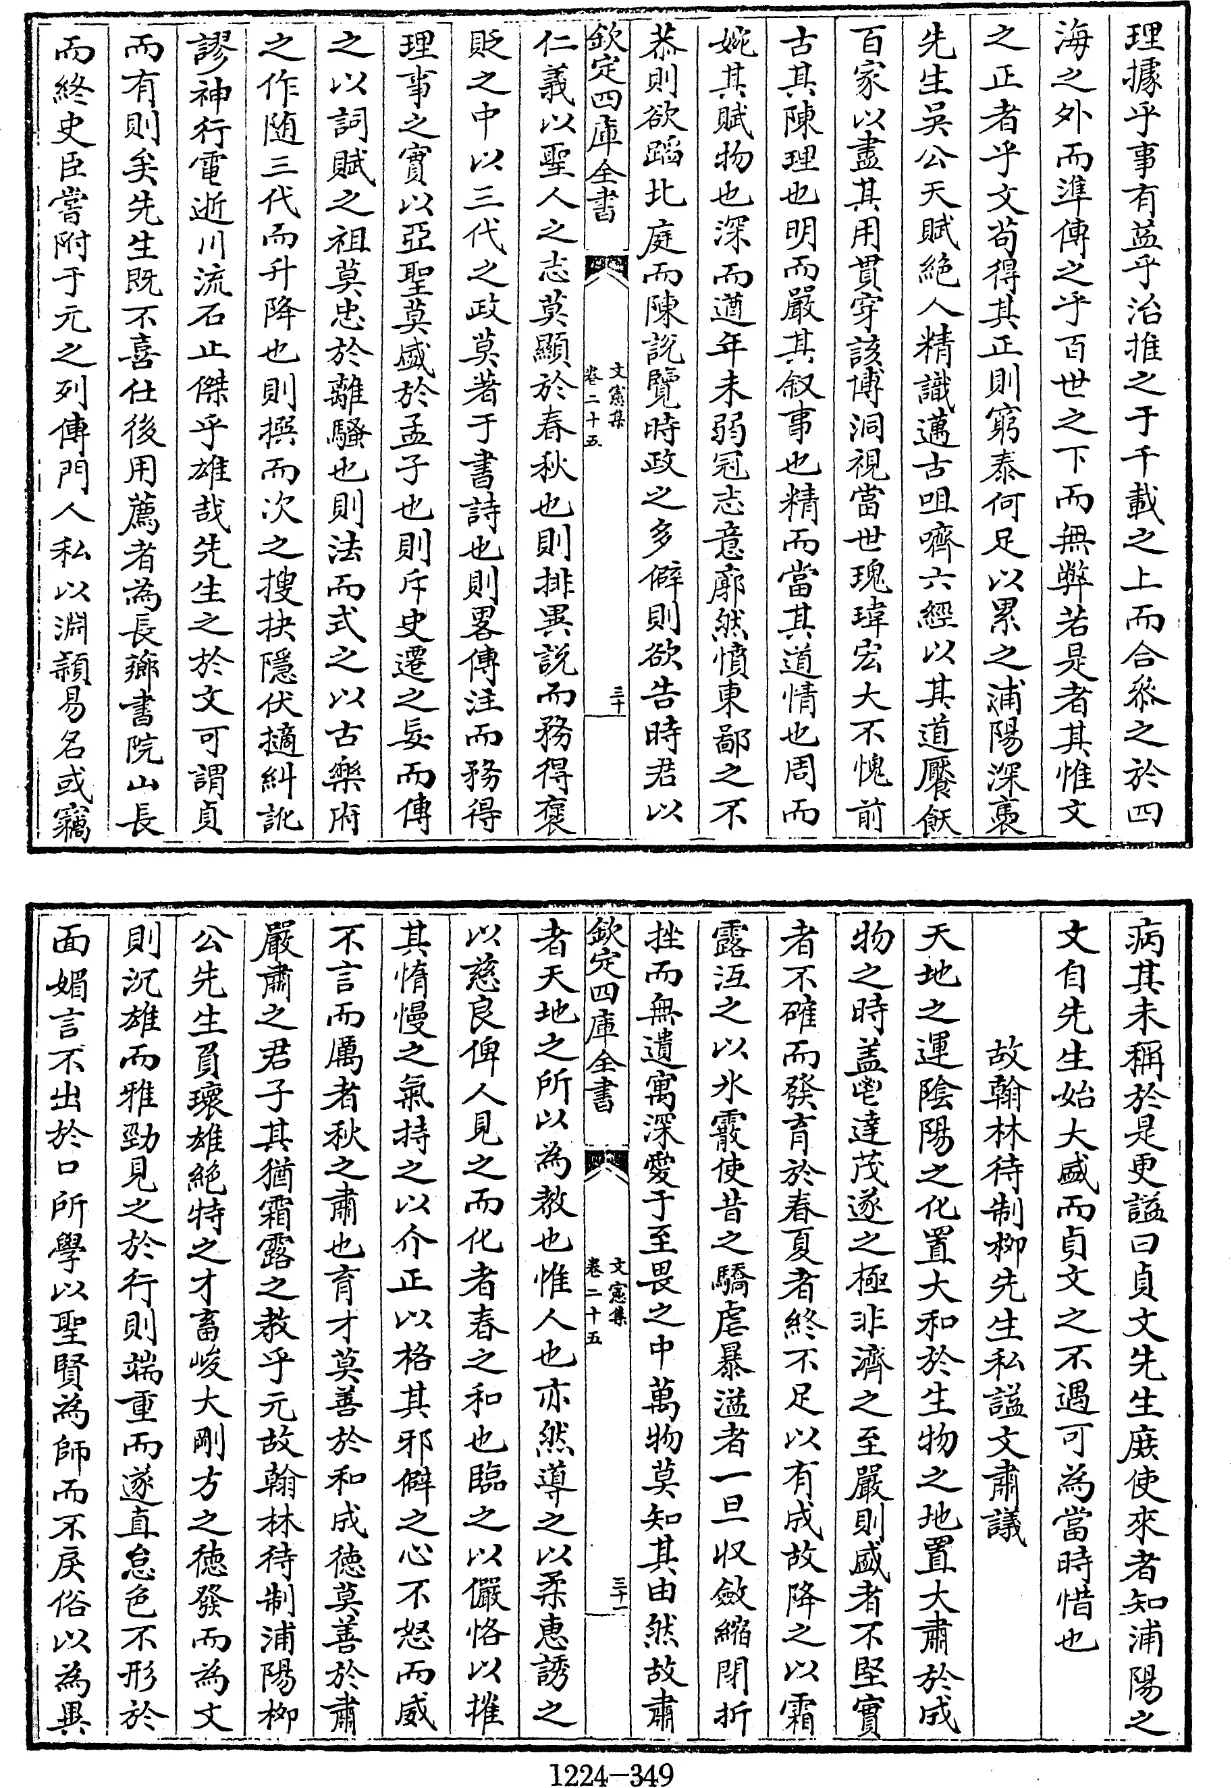 理據乎事有益乎治推之于千載之上而合叅之於四
海之外而準傳之乎百世之下而無弊若是者其惟文
之正者乎文茍得其正則窮泰何足以累之浦陽深裹
先生吳公天賦絶人精識邁古咀嚌六經以其道饜飫
百家以盡其用貫穿該博洞視當世瑰瑋宏大不愧前
古其陳理也明而嚴其叙事也精而當其道情也周而
婉其賦物也深而遒年未弱冠志意廓然憤東鄙之不
恭則欲蹈北庭而陳說覽時政之多僻則欲告時君以
欽定四庫全書
文憲集
卷二十五
三十
仁義以聖人之志莫顯於春秋也則排異說而務得褒
貶之中以三代之政莫著于書詩也則畧傳注而務得
理事之實以亞聖莫盛於孟子也則斥史遷之妄而傳
之以詞賦之祖莫忠於離騷也則法而式之以古樂府
之作隨三代而升降也則撰而次之搜抉隱伏擿糾訛
謬神行電逝川流石止傑乎雄哉先生之於文可謂貞
而有則矣先生既不喜仕後用薦者為長薌書院山長
而終史臣嘗附于元之列傳門人私以淵穎易名或竊
病其未稱於是更謚曰貞文先生庶使來者知浦陽之
文自先生始大盛而貞文之不遇可為當時惜也
故翰林待制栁先生私謚文肅議
天地之運陰陽之化置大和於生物之地置大肅於成
物之時盖鬯達茂遂之極非濟之至嚴則盛者不堅實
者不確而發育於春夏者終不足以有成故降之以霜
露沍之以氷霰使昔之驕虐暴溢者一旦收斂縮閉折
挫而無遺寓深愛于至畏之中萬物莫知其由然故肅
欽定四庫全書
文憲集
卷二十五
三十一
者天地之所以為教也惟人也亦然導之以柔惠誘之
以慈良俾人見之而化者春之和也臨之以儼恪以摧
其惰慢之氣持之以介正以格其邪僻之心不怒而威
不言而厲者秋之肅也育才莫善於和成德莫善於肅
嚴肅之君子其猶霜露之教乎元故翰林待制浦陽栁
公先生負瓌雄絶特之才畜峻大剛方之德發而為文
則沉雄而雅勁見之於行則端重而遂直怠色不形於
面媚言不出於口所學以聖賢為師而不戾俗以為異
1224—349